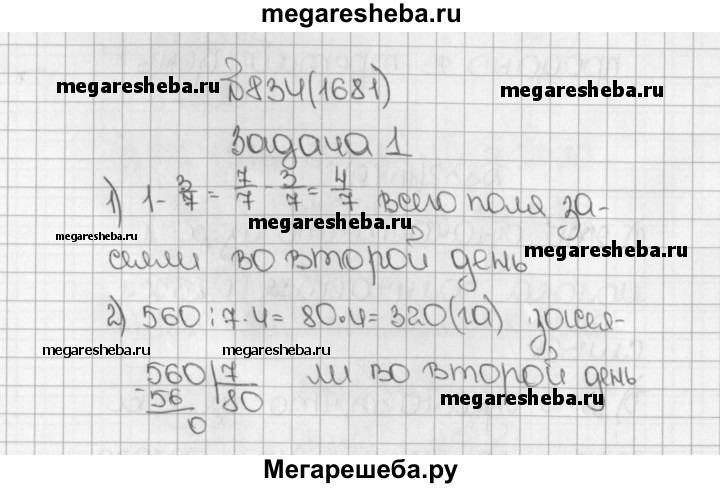 megaresheba.ru
№834(1681)
megaresheba.ru
megaresheba.ru
Задача 1
1) 1 - 3/7 = 7/7 - 3/7 = 4/7 всего поля за-
megaresheba.ru
megaresheba.ru
megaresheba.ru
сеяли во второй день
2) 560 : 7 · 4 = 80 · 4 = 320 (га) засея-
megaresheba.ru
megaresheba.ru
560 | 7 ли во второй день
- 56 80
megaresheba.ru
0
Мегарешеба.ру